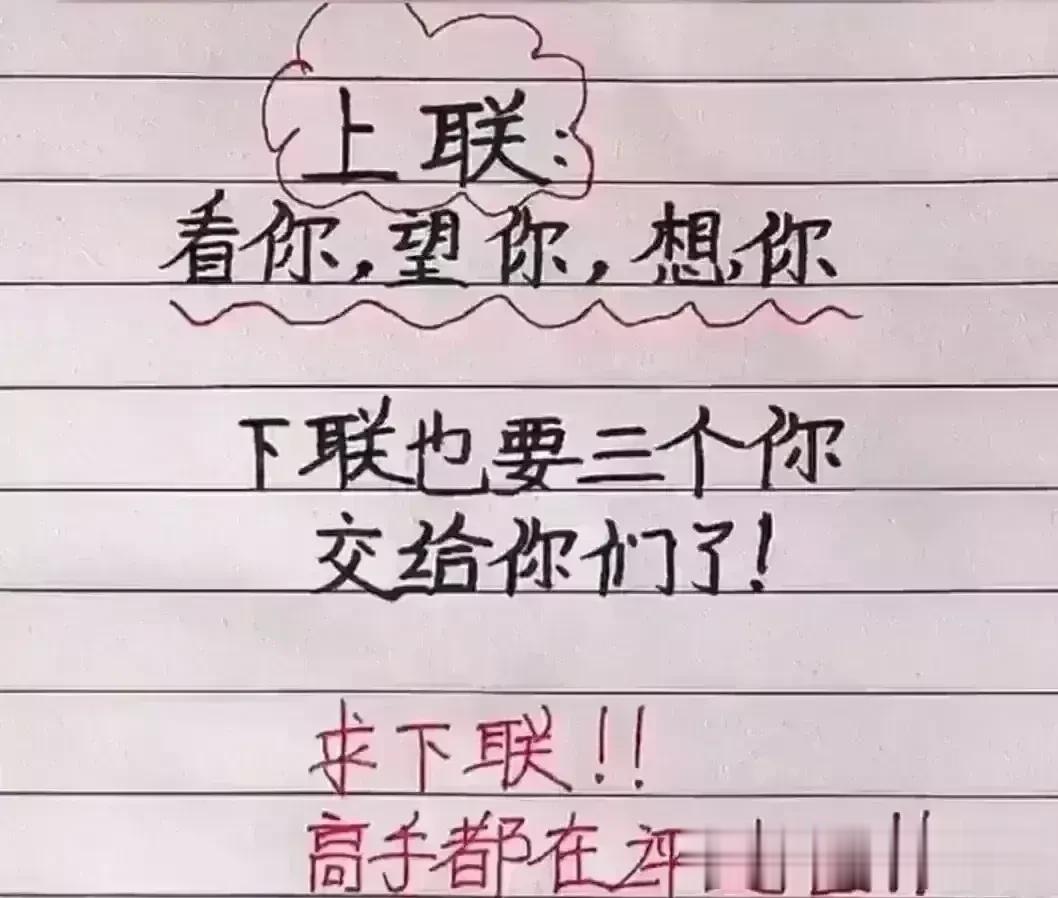 上联:
看你,望你,想,你
下联也要三个你
交给你们了!
求下联!!
高手都在评